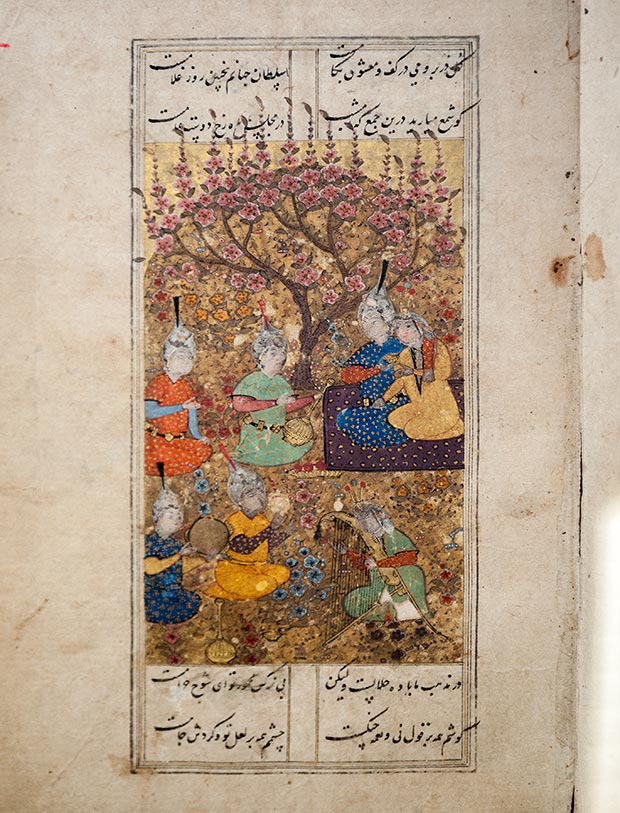 گل در بر و می در کف و معشوق بکامست سلطان جهانم بچنین روز غلامست
گو شمع میارید درین جمع که امشب در مجلس ما ماه رخ دوست تمامست
در مذهب ما باده حلالست ولیکن بی نرگس مخمور تو ای شوخ حرامست
گوشم همه بر قول نی و نغمه چنگست چشمم همه بر لعل تو و گردش جامست